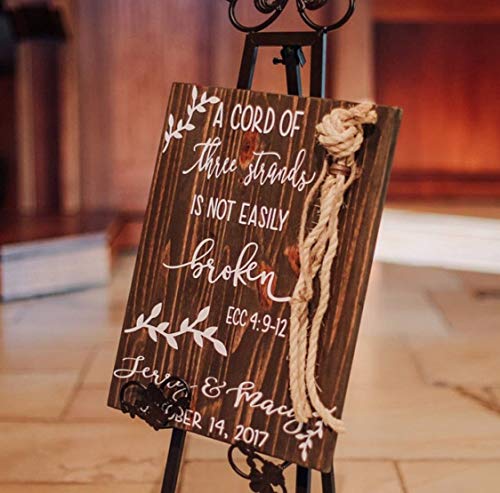 A CORD OF
three strands
IS NOT EASILY
broken
ECC 4:9-12
& Macy
14, 2017